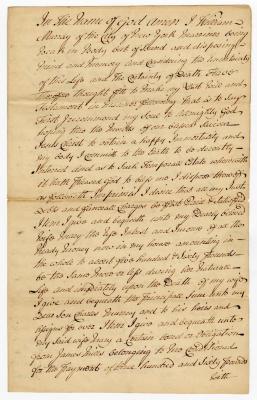 In the Name of God Amen I William
Murray of the City of New York Mariner being
Weak in Body but of Sound and disposing
Mind and Memory and Considering the uncertainty
of this Life and the Certainty of Death have
thought fit to make my last Will and
Testament in Manner following that is to say
First I recommend my Soul to Almighty God
hoping thro the Merits of our
to obtain a happy Immortality and
my Body I commit to the Earth to be decently
Interred and as to such Temporal Estate wherewith
it hath pleased God to bless me I dispose thereof
as followeth Imprimis I desire that all my Just
Debts and funeral Charges be paid
Item I give and bequeath unto my Dearly beloved
Wife Mary the Use Interest and Income of all the
Ready Money now in my house amounting in
the whole to about five hundred & Sixty pounds
be the Same more or less during her Natural
Life and immediately upon the Death of my wife
I give and bequeath the principal Sum unto my
Dear Son Charles Murray and to his heirs and
assigns for ever Item I give and bequeath unto
my said wife Mary a Certain bond or Obligation
from James belonging to me Conditioned
for the payment of three hundred and Sixty pounds